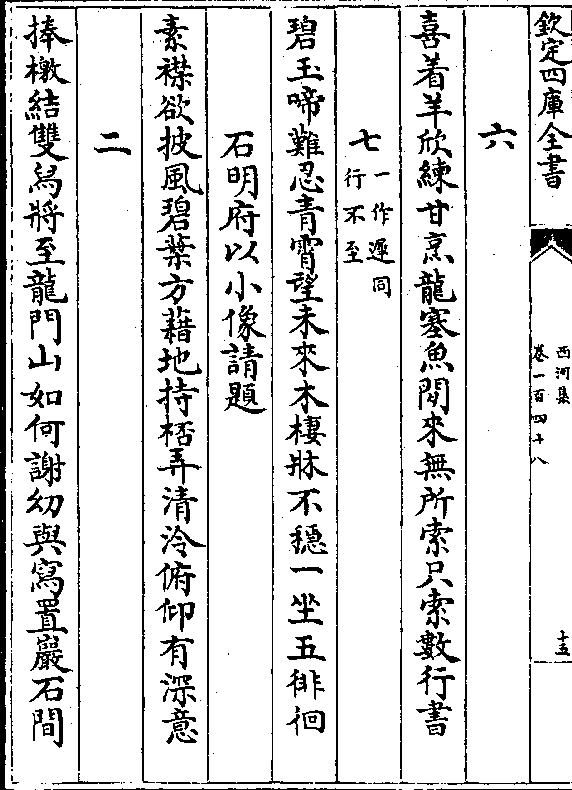 欽定四庫全書
西河集
卷一百四十八
十五
六
喜着羊欣練甘烹龍塞魚閒來無所索只索數行書
七一作遲同行不至
碧玉啼難忍青霄望未來木棲牀不穩一坐五徘徊
石明府以小像請題
素襟欲披風碧葉方藉地持桮弄清泠俯仰有深意
二
捧檄結雙舄將至龍門山如何謝幼輿寫置巖石間